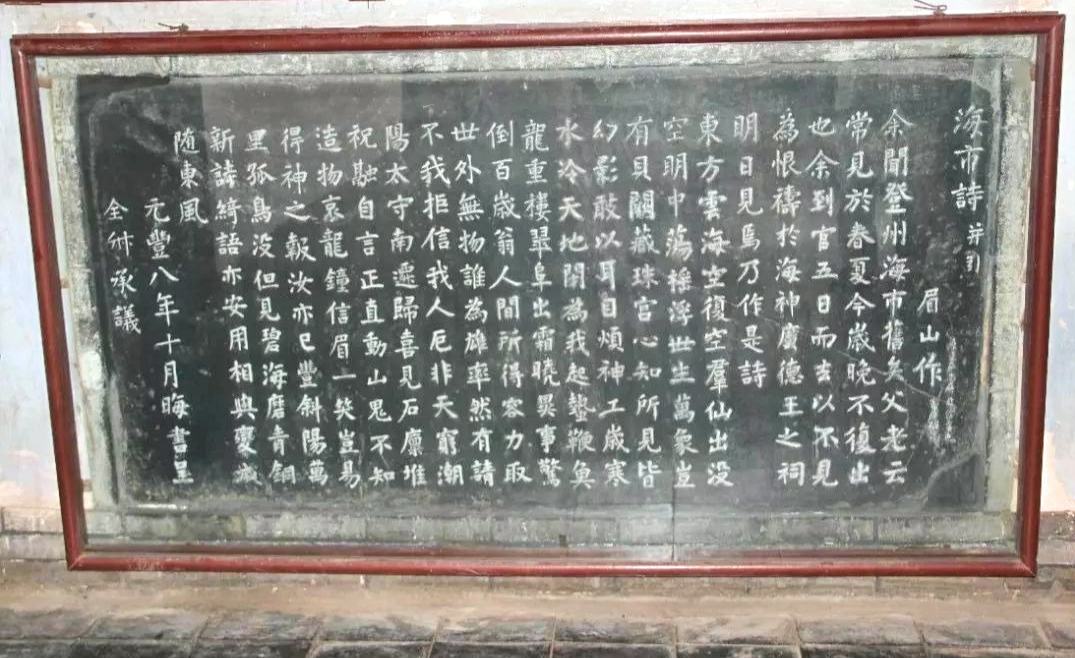 海市詩 并引
眉山作
余聞登州海市舊矣父老云
常見於春夏今歲晚不復出
也余到官五日而去以不見
為恨禱於海神廣德王之祠
明日見焉乃作是詩
東方雲海空復空羣仙出没
空明中蕩搖浮世生萬象豈
有貝闕藏珠宮心知所見皆
幻影敢以耳目煩神工歲寒
水冷天地閉為我起蟄鞭魚
龍重樓翠阜出霜曉異事驚
倒百歲翁人間所得容力取
世外無物誰為雄率然有請
不我拒信我人厄非天窮潮
陽太守南遷歸喜見石廩堆
祝融自言正直動山鬼不知
造物哀龍鐘信眉一笑豈易
得神之報汝亦已豐斜陽萬
里孤鳥没但見碧海磨青銅
新詩綺語亦安用相與變滅
随東風
元豐八年十月晦書呈
全叔承議